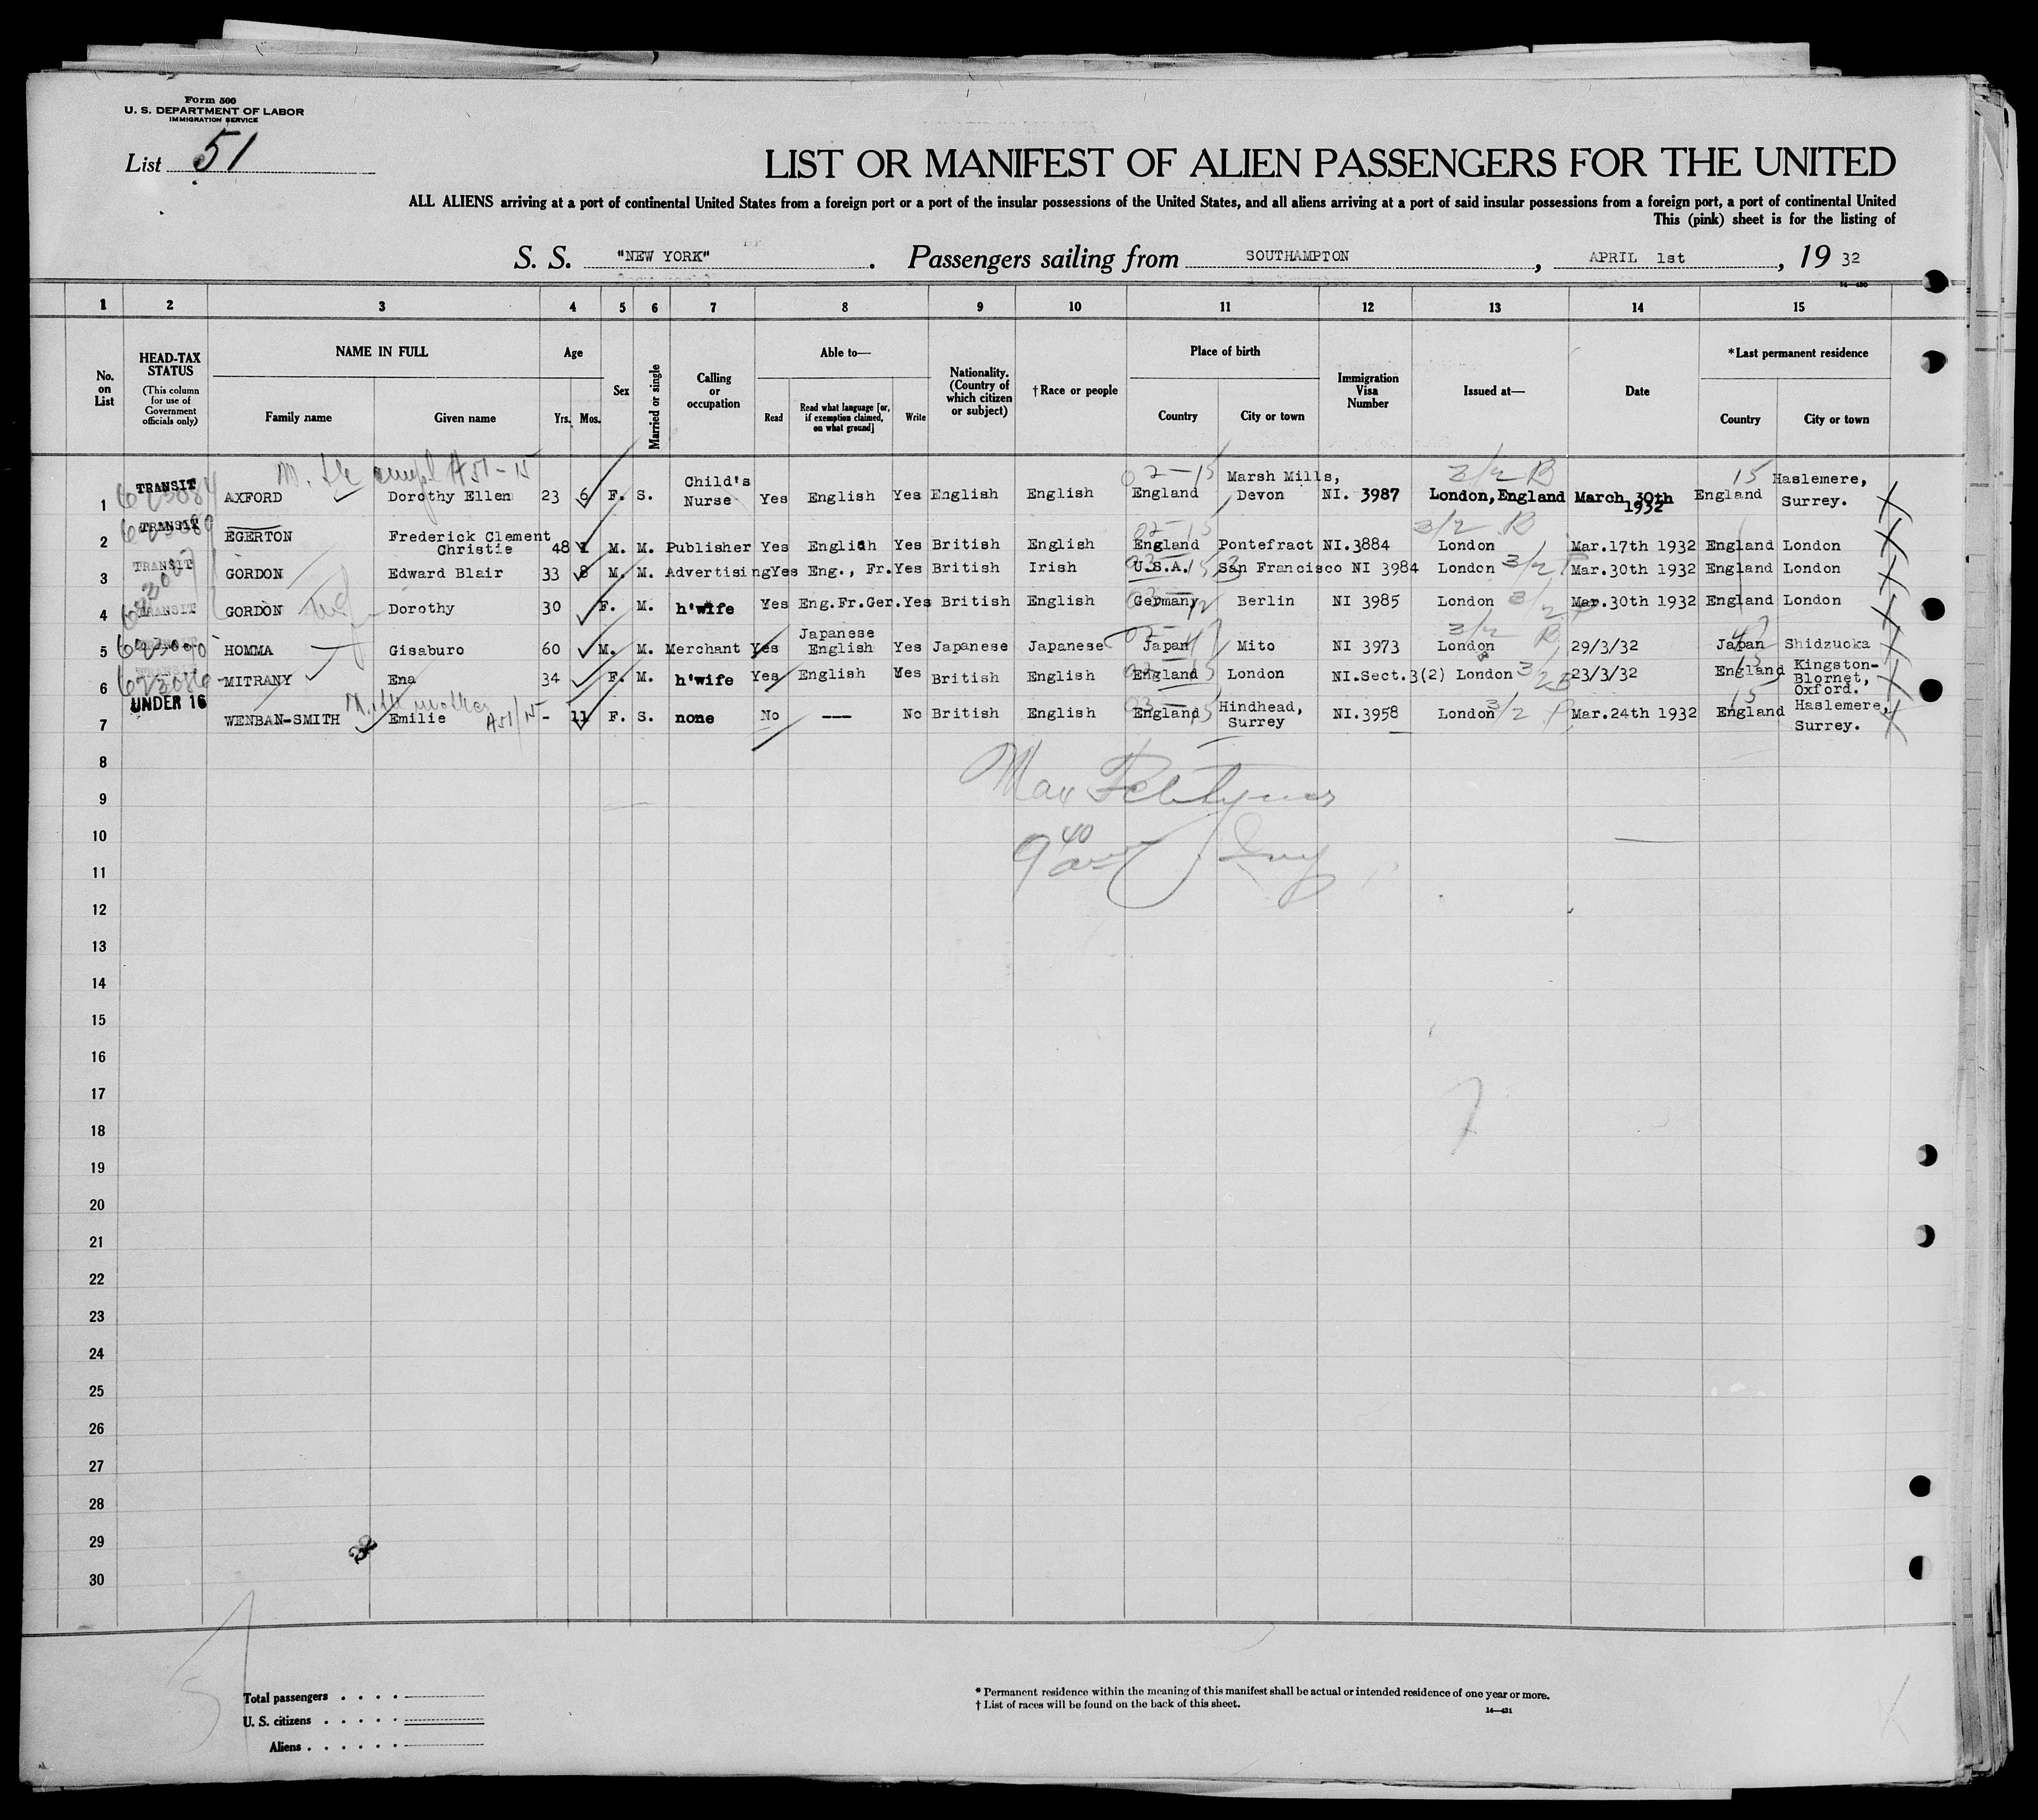 Form 500
U. S. DEPARTMENT OF LABOR
IMMIGRATION SERVICE
List 51
LIST OR MANIFEST OF ALIEN PASSENGERS FOR THE UNITED
ALL ALIENS arriving at a port of continental United States from a foreign port or a port of the insular possessions of the United States, and all aliens arriving at a port of said insular possessions from a foreign port, a port of continental United
This (pink) sheet is for the listing of
S. S. "NEW YORK" . Passengers sailing from SOUTHAMPTON , APRIL 1st , 19 32
14—430
1 2 3 4 5 6 7 8 9 10 11 12 13 14 15
No. on List
HEAD-TAX STATUS
(This column for use of Government officials only)
NAME IN FULL
Family name Given name
Age
Yrs. Mos.
Sex
Married or single
Calling or occupation
Able to—
Read
Read what language [or, if exemption claimed, on what ground]
Write
Nationality. (Country of which citizen or subject)
†Race or people
Place of birth
Country City or town
Immigration Visa Number
Issued at—
Date
*Last permanent residence
Country City or town
1 TRANSIT AXFORD Dorothy Ellen 23 6 F. S. Child's Nurse Yes English Yes English English England Marsh Mills, Devon NI. 3987 London, England March 30th 1932 England Haslemere, Surrey.
2 TRANSIT EGERTON Frederick Clement Christie 48 1 M. M. Publisher Yes English Yes British English England Pontefract NI.3884 London Mar.17th 1932 England London
3 TRANSIT GORDON Edward Blair 33 8 M. M. Advertising Yes Eng., Fr. Yes British Irish U.S.A. San Francisco NI 3984 London Mar.30th 1932 England London
4 TRANSIT GORDON Dorothy 30 F. M. h'wife Yes Eng.Fr.Ger. Yes British English Germany Berlin NI 3985 London Mar.30th 1932 England London
5 HOMMA Gisaburo 60 M. M. Merchant Yes Japanese English Yes Japanese Japanese Japan Mito NI 3973 London 29/3/32 Japan Shidzuoka
6 TRANSIT MITRANY Ena 34 F. M. h'wife Yes English Yes British English England London NI.Sect.3(2) London 23/3/32 England Kingston-Blornet, Oxford.
7 UNDER 16 WENBAN-SMITH Emilie - 11 F. S. none No --- No British English England Hindhead, Surrey NI.3958 London Mar.24th 1932 England Haslemere, Surrey.
8
9
10
11
12
13
14
15
16
17
18
19
20
21
22
23
24
25
26
27
28
29
30
Total passengers
U. S. citizens
Aliens
* Permanent residence within the meaning of this manifest shall be actual or intended residence of one year or more.
† List of races will be found on the back of this sheet.
14—431